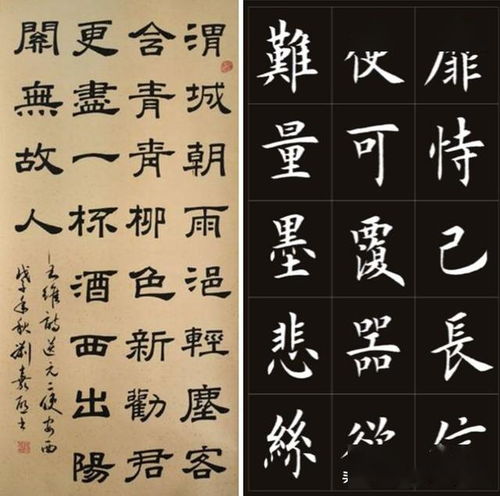 渭城朝雨浥輕塵客
舍青青柳色新勸君
更盡一杯酒西出陽
關無故人
王維詩送元二使安西
戊子年秋劉嘉書
恃己長
使可覆器欲
難量墨悲絲